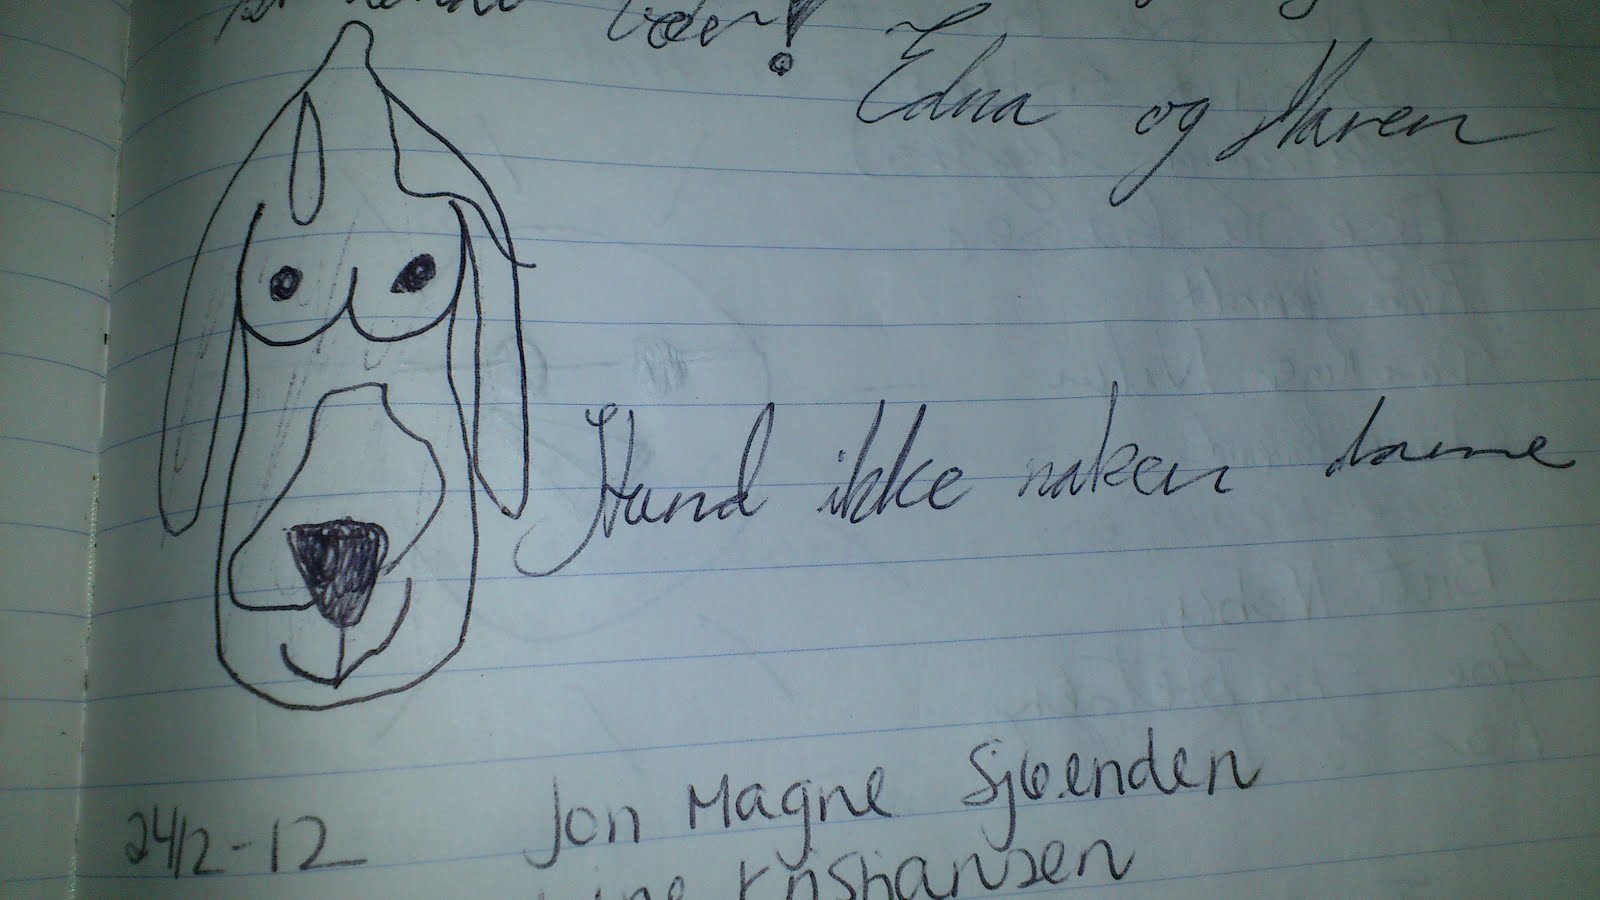 Edna og Maren
Hund ikke naken dame
24/2-12 Jon Magne Sjøenden
Kristiansen